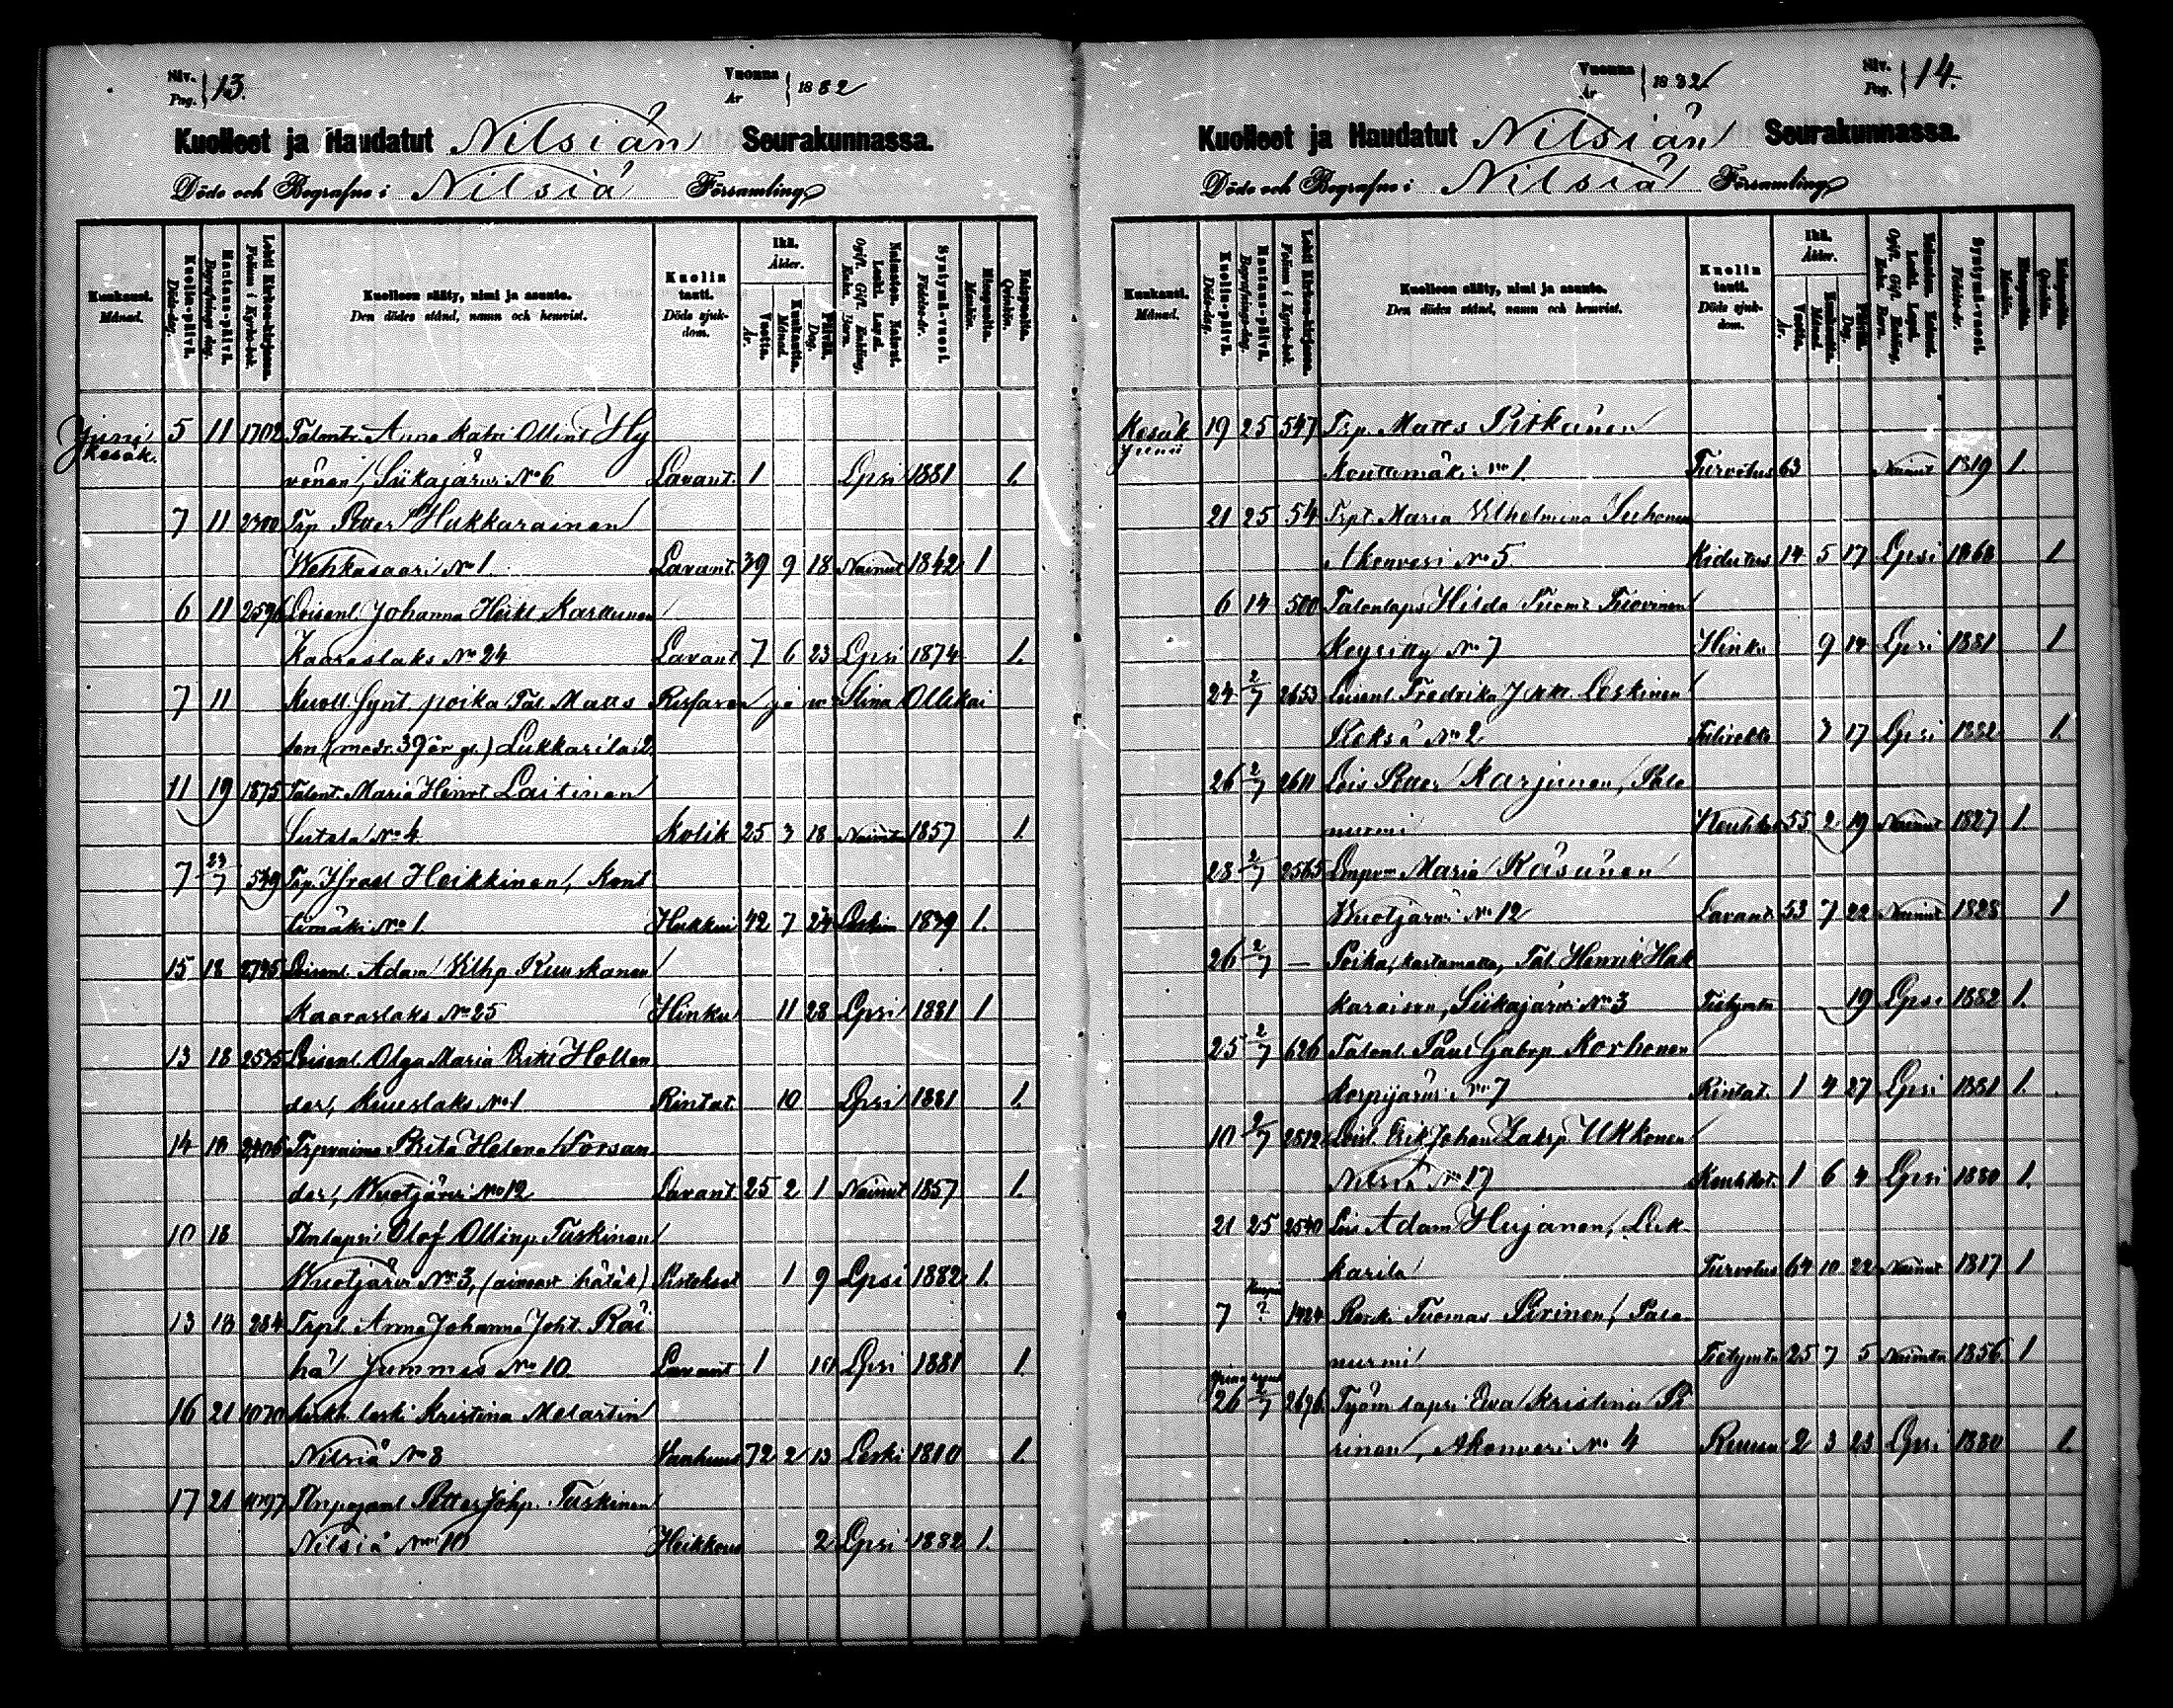 Siv. Pag. 13.
Vuonna År 1882
Kuolleet ja Haudatut Nilsiän Seurakunnassa.
Döde och Begrafne i Nilsiä Församling
Kuukausi. Månad.
Kuolin-päivä. Döds-dag.
Hautaus-päivä. Begrafnings dag.
Lehti Kirkon-kirjassa. Folium i Kyrko-bok.
Kuolleen sääty, nimi ja asunto.
Den dödes stånd, namn och hemvist.
Kuolin tauti. Döds sjukdom.
Ikä. Ålder.
Vuotta. År.
Kuukautta. Månad.
Päivää. Dag.
Syntymä-vuosi. Födelse-år.
Miespuolia. Mankön.
Vaimopuolia. Qvinkön.
Junij 5 11 1702 Talontr Anna Katri Ollint Hy
Kesäk.
vönen, Siikajärvi No 6 Lavant. 1 Lpsi 1881 1.
7 11 2700 Trp. Petter Hukkarainen
Wehkasaari No 1. Lavant. 39 9 18 Nainut 1842 1
6 11 Loisenl. Johanna Heikt. Karttunen
Kaaraslaks No 24 Lavant 7 6 23 Lpsi 1874 1.
7 11 Kuoll. Synt. poika Tal. Matts Stina Ollikai
sen (modr. 39 år gl.) Lukkarila 2
11 19 1875 Talont. Maria Henrt. Laitinen
No 4 Kolik 25 3 18 1857 1.
7 23/7 549 Trp. Israel Heikkinen, Kont
timäki No 1. Hukkui 42 7 24 Leskim 1839 1.
15 18 2795 Loisenl. Adam Vilhp Ruuskanen
Kaaraslaks No 25 Hinku 11 28 Lpsi 1881 1
13 18 2575 Loisenl. Olga Maria Erikt Hollen
der, Kuuslaks No 1 Rintat. 10 Lpsi 1881 1.
14 18 Trpvaimo Brita Helena Torsan
der, Wuotjärvi No 12 Lavant. 25 2 1 Nainut 1857 1.
10 18 Olof Ollinp. Tuskinen
Wuotjärvi No 3, 1 9 Lpsi 1882 1.
13 18 284 Trpl. Anna Johanna Joht. Räi
hä Jummis No 10 Lavant 1 Lpsi 1881 1.
16 21 1070 leski Kristina Molartin
Nilsiä No 8 Vanhuus 72 2 13 Leski 1810 1.
17 21 Petter Johp. Tuskinen
Nilsiä No 10 Heikkous 2 Lpsi 1882 1.
Vuonna År 1882
Siv. Pag. 14.
Kuolleet ja Haudatut Nilsiän Seurakunnassa.
Döde och Begrafne i Nilsiä Församling
Kuukausi. Månad.
Kuolin-päivä. Döds-dag.
Hautaus-päivä. Begrafnings-dag.
Lehti Kirkon-kirjassa. Folium i Kyrko-bok.
Kuolleen sääty, nimi ja asunto.
Den dödes stånd, namn och hemvist.
Kuolin tauti. Döds sjukdom.
Ikä. Ålder.
Vuotta. År.
Kuukautta. Månad.
Päivää. Dag.
Syntymä-vuosi. Födelse-år.
Miespuolia. Mankön.
Vaimopuolia. Qvinkön.
Kesäk 19 25 547 Trp. Matts Pitkänen
Junii
Konttimäki No 1. Turvotus 63 Nainut 1819 1.
21 25 54 Trpt. Maria Vilhelmina Suhonen
Akonvesi No 5 Kidutus 14 5 17 Lpsi 1868 1
6 14 500 Talonlaps Hilda Tuomt Tuovinen
Keyritty No 7 Hinku 9 14 Lpsi 1881 1
24 2/7 2653 Loisenl. Fredrika Leskinen
No 2 3 17 Lpsi 1882 1.
26 2/7 2611 Lois Petter Karjunen, Palo
nurmi Keuhkot 55 2 19 Nainut 1827 1.
28 2/7 2565 Maria Räsänen
Wuotjärvi No 12 Lavant. 53 7 22 Nainut 1828 1
26 2/7 — Poika, kastamatta, Tal. Henrik Hak
karaisen, Siikajärvi No 3 Tietymtn 19 Lpsi 1882 1.
25 2/7 626 Talonl. Paul Gabrp Korhonen
Korpijärvi No 7 Rintat. 1 4 27 Lpsi 1881 1.
10 2/7 2812 Loisl. Erik Johan Zakrp Ukkonen
Nilsiä No 17 Keuhkot. 1 6 4 Lpsi 1880 1.
21 25 2540 Lois Adam Hujanen, Luk
karila Turvotus 64 10 22 Nainut 1817 1
7 ? 1424 Renki Tuomas Pirinen, Palo
nurmi Tietymtn 25 7 5 Naimtn 1856. 1
26 2/7 2696. Työm lapsi Eva Kristina Pi
rinen, Akonvesi No 4 2 3 23 Lpsi 1880 1.